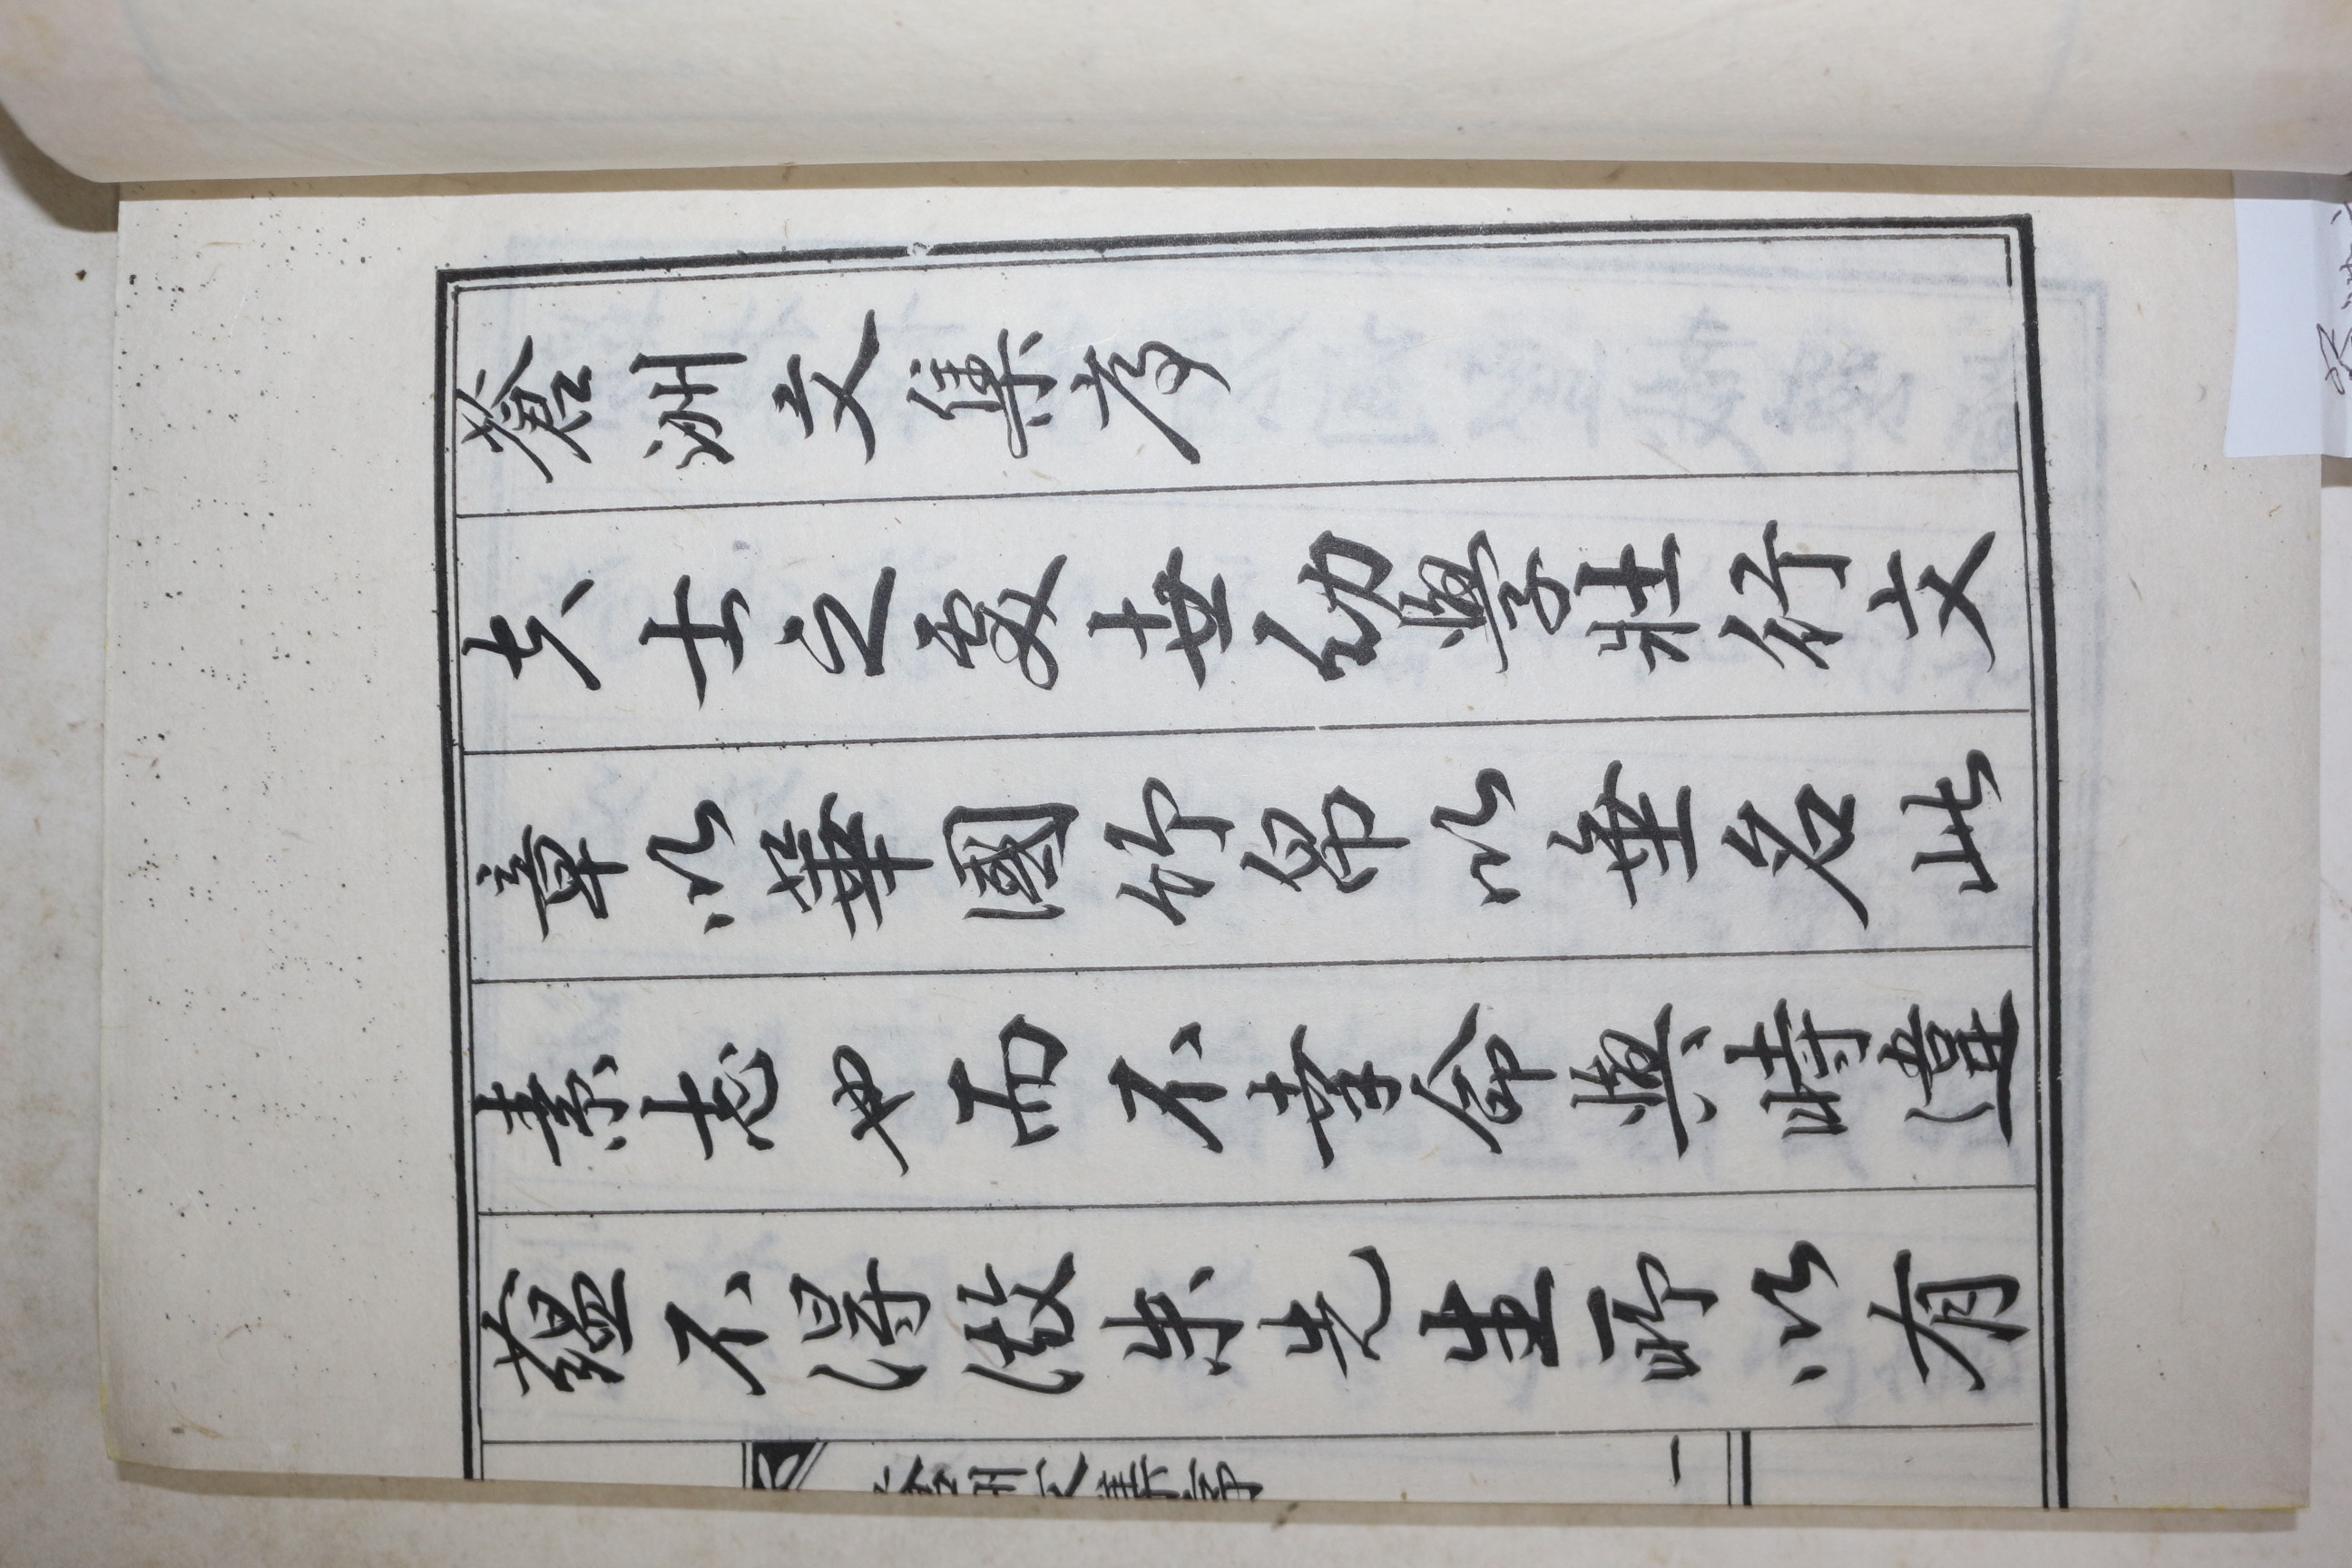 蒼洲文集序
夫士之處世幼學壯行文
章以華國竹帛以垂名此
素志也而不幸命與時違
蘊不得做朱先生所以有
一